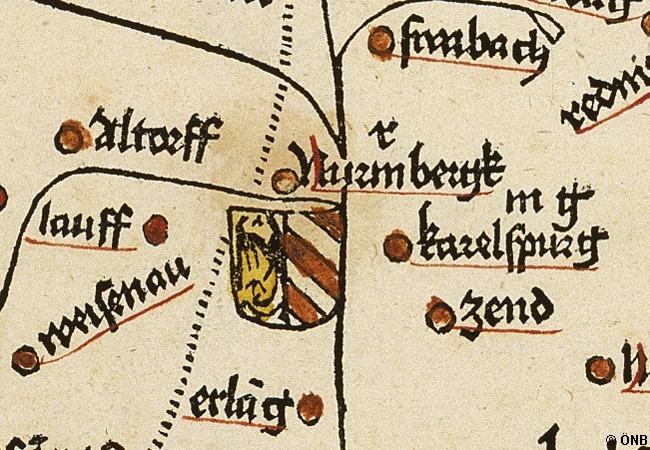 swabach
Altorff
r
Nurmbergk
lauff
m g
karelspurg
weisenau
zend
erlāg
© ÖNB